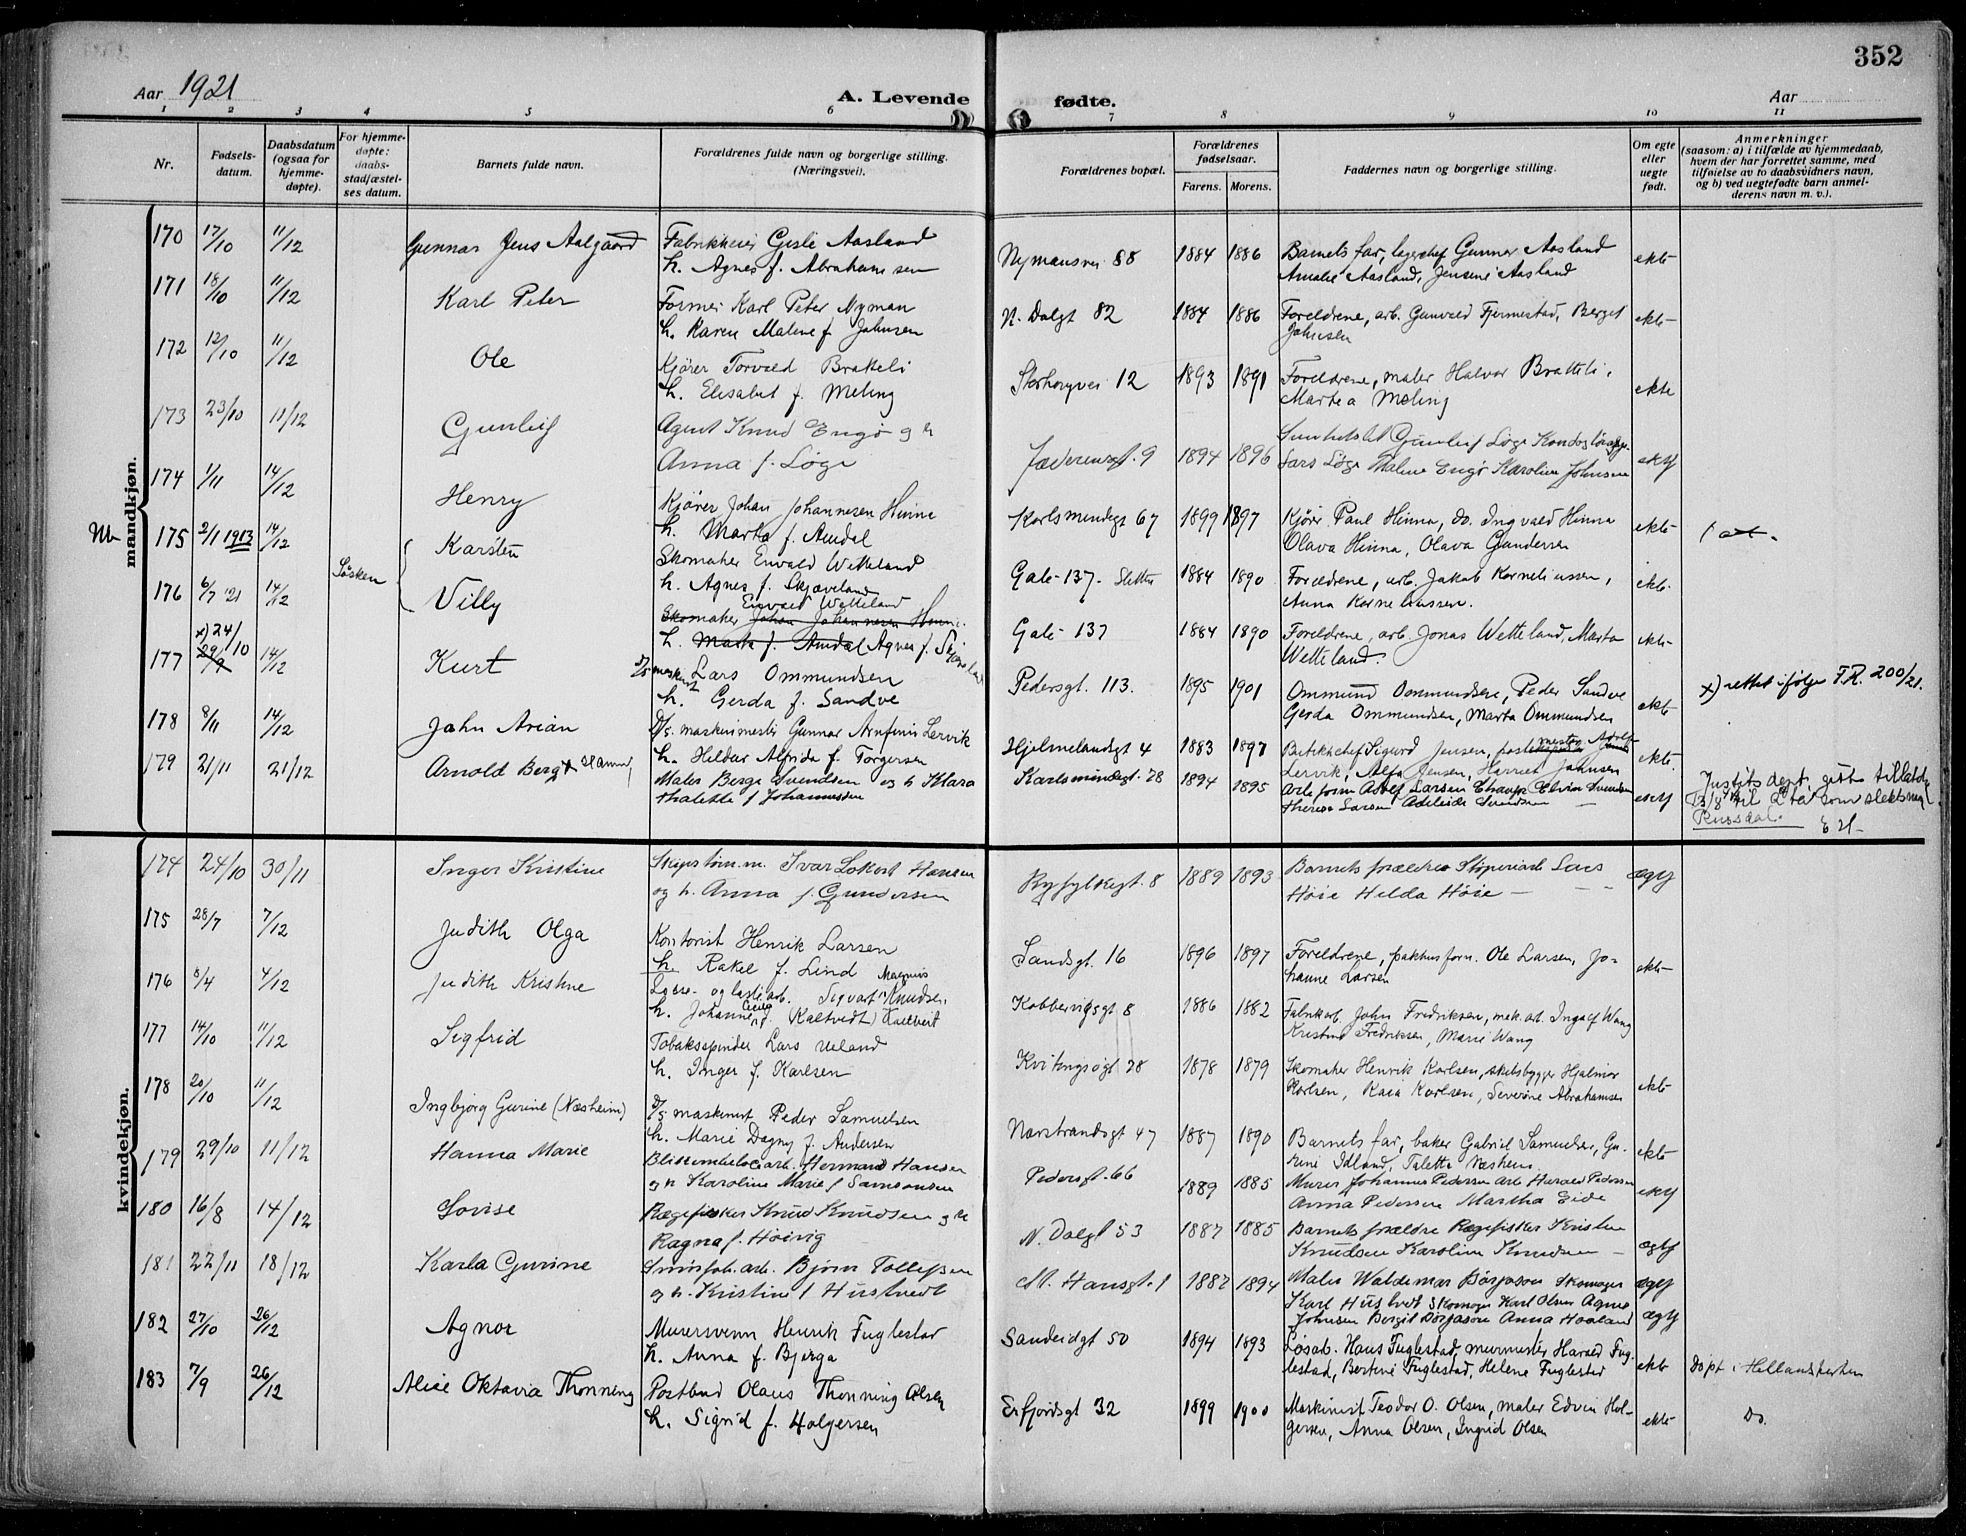 352
Aar 1921
A. Levende
fødte.
Aar
1 2 3 4 5 6 7 8 9 10 11
Nr.
Fødsels-
datum.
Daabsdatum
(ogsaa for
hjemme-
døpte).
For hjemme-
døpte:
daabs-
stadfæstel-
ses datum.
Barnets fulde navn.
Forældrenes fulde navn og borgerlige stilling.
(Næringsvei).
Forældrenes bopæl.
Forældrenes
fødselsaar.
Farens. Morens.
Faddernes navn og borgerlige stilling.
Om egte
eller
uegte
født.
Anmerkninger
(saasom: a) i tilfælde av hjemmedaab,
hvem der har forrettet samme, med
tilføielse av to daabsvidners navn,
og b) ved uegtefødte barn anmel-
derens navn m. v.).
mandkjøn.
170 17/10 11/12 Gunnar Jens Aalgaard Fabrikkeier Gisle Aasland
h. Agnes f. Abrahamsen
Nymansvei 88 1884 1886 Barnets far, lagerchef Gunnar Aasland
Amalie Aasland, Jensine Aasland
ekte
171 18/10 11/12 Karl Peter Former Karl Peter Nyman
h. Karen Malene f. Johnsen
N. Dalgt 82 1884 1886 Foreldrene, arb. Gunvald Fjermestad, Berget
Johnsen
ekte
172 12/10 11/12 Ole Kjører Torvald Brakeli
h. Elisabet f. Meling
Storhaugvei 12 1893 1891 Foreldrene, maler Halvor Bratteli,
Martea Meling
ekte
173 23/10 11/12 Gunleif Agent Knud Engø og h
Anna f. Løge
Jæderensgt. 9 1894 1896
Lars Løge Malene Engø Karoline Johnsen
174 1/11 14/12 Henry Kjører Johan Johannesen Hinna
h. Marta f. Amdal
Karlsmindegt 67 1899 1897 Kjører Paul Hinna, do. Ingvald Hinna
Olava Hinna, Olava Gundersen
ekte
175 2/1 1913 14/12 Søsken Karsten Skomaker Envald Wetteland
h. Agnes f. Skjæveland
Gate 137. Sletten 1884 1890 Foreldrene, arb. Jakob Korneliussen,
Anna Korneliussen.
ekte
176 6/7 '21 14/12 Villy Envald Wetteland
Skomaker Johan Johannesen Hinna
h. Marta f. Amdal Agnes f. Skjæveland
Gate 137 1884 1890 Foreldrene, arb. Jonas Wetteland, Marta
Wetteland.
ekte
177 x) 24/10 29/9 14/12 Kurt D/S maskinist Lars Ommundsen
h. Gerda f. Sandve
Pedersgt. 113. 1895 1901 Ommund Ommundsen, Peder Sandve
Gerda Ommundsen, Marta Ommundsen
ekte x) rettet ifølge F.R. 200/21.
178 8/11 14/12 John Arian D/S. maskinmester Gunnar Arnfinn Lervik
h. Heldur Alfrida f. Torgersen
Hjelmelandsgt 4 1883 1897 Butikkchef Sigurd Jensen,
Lervik, Alfa Jensen, Harriet Johnsen
ekte.
179 21/11 21/12 Arnold Berg Maler Berge Svendsen og h Klara
Thalette f Johannesen
Karlsmindegt. 28 1894 1895 Arb.form Adolf Larsen Elvin Svendsen
Therese Larsen Adelaide Svendsen
Justits dept. gitt tillatelse
13/8 til å ta som slektsnavn
Russdal.
kvindekjøn.
174 24/10 30/11 Inger Kristine Skipstøm.m. Ivar Lokert Hansen
og h. Anna f. Gundersen
Ryfylkegt. 8 1889 1893 Barnets forældre Støperiarb Lars
Høie Hilda Høie
ægt
175 28/7 7/12 Judith Olga Kontorist Henrik Larsen
h. Rakel f. Lind
Sandsgt. 16 1896 1897 Foreldrene, pakhusform. Ole Larsen, Jo-
hanne Larsen
ekte
176 8/4 4/12 Judith Kristine Losse- og lastearb. Sigvart Magnus Knudsen.
h. Johanne f. Kaltvedt
Kobbervigsgt 8 1886 1882 Fabrikarb. John Fredriksen, mek. arb. Ingolf Wang
Kristine Fredriksen, Marie Wang
177 14/10 11/12 Sigfrid Tobaksspinder Lars Ueland
h. Inger f. Karlsen
Kvitingsøgt 28 1878 1879 Skomaker Henrik Karlsen, skibsbygger Hjalmar
Karlsen, Kaia Karlsen, Severine Abrahamsen
ekte
178 20/10 11/12 Ingbjørg Gurine (Næsheim) D/S maskinist Peder Samuelsen
h. Marie Dagny f. Andersen
Norstrandsgt 47 1887 1890 Barnets far, baker Gabriel Samuelsen, Gu-
rine Idland, Talette Næsheim.
ekte
179 29/10 11/12 Hanna Marie Blikemballagearb. Hermand Hansen
og h Karoline Marie f Samsonsen
Pedersgt. 66 1889 1885 Murer Johannes Pedersen arb Harald Pedersen
Anna Pedersen Martha Eide
180 16/8 14/12 Lovise Rægefisker Knud Knudsen og h
Ragna f. Høivig
N. Dalgt 53 1887 1885 Barnets forældre Rægefisker Kristen
Knudsen Karoline Knudsen
181 22/11 18/12 Karla Gurine Bjørn Tollefsen
og h. Kristine f Hustvedt
St. Hansgt. 1 1887 1894 Maler Waldemar Børjeson Skomager
Karl Hustvedt Skomager Karl Olsen Agnes
Johnsen Bergit Børjeson Anna Haaland
182 27/10 26/12 Agnor Murersvenn Henrik Fuglestad
h. Anna f. Bjerga
Sandeidgt 50 1894 1893 Løsarb. Hans Fuglestad, murmester Harald Fug-
lestad, Bertine Fuglestad, Helene Fuglestad
ekte Døpt i Hetlandskirken
183 7/9 26/12 Alise Oktavia Thonning Postbud Olaus Thonning Olsen
h. Sigrid f. Holgersen
Erfjordsgt 32 1899 1900 Maskinist Teodor O. Olsen, maler Edvin Hol-
gersen, Anna Olsen, Ingrid Olsen
ekte Do.